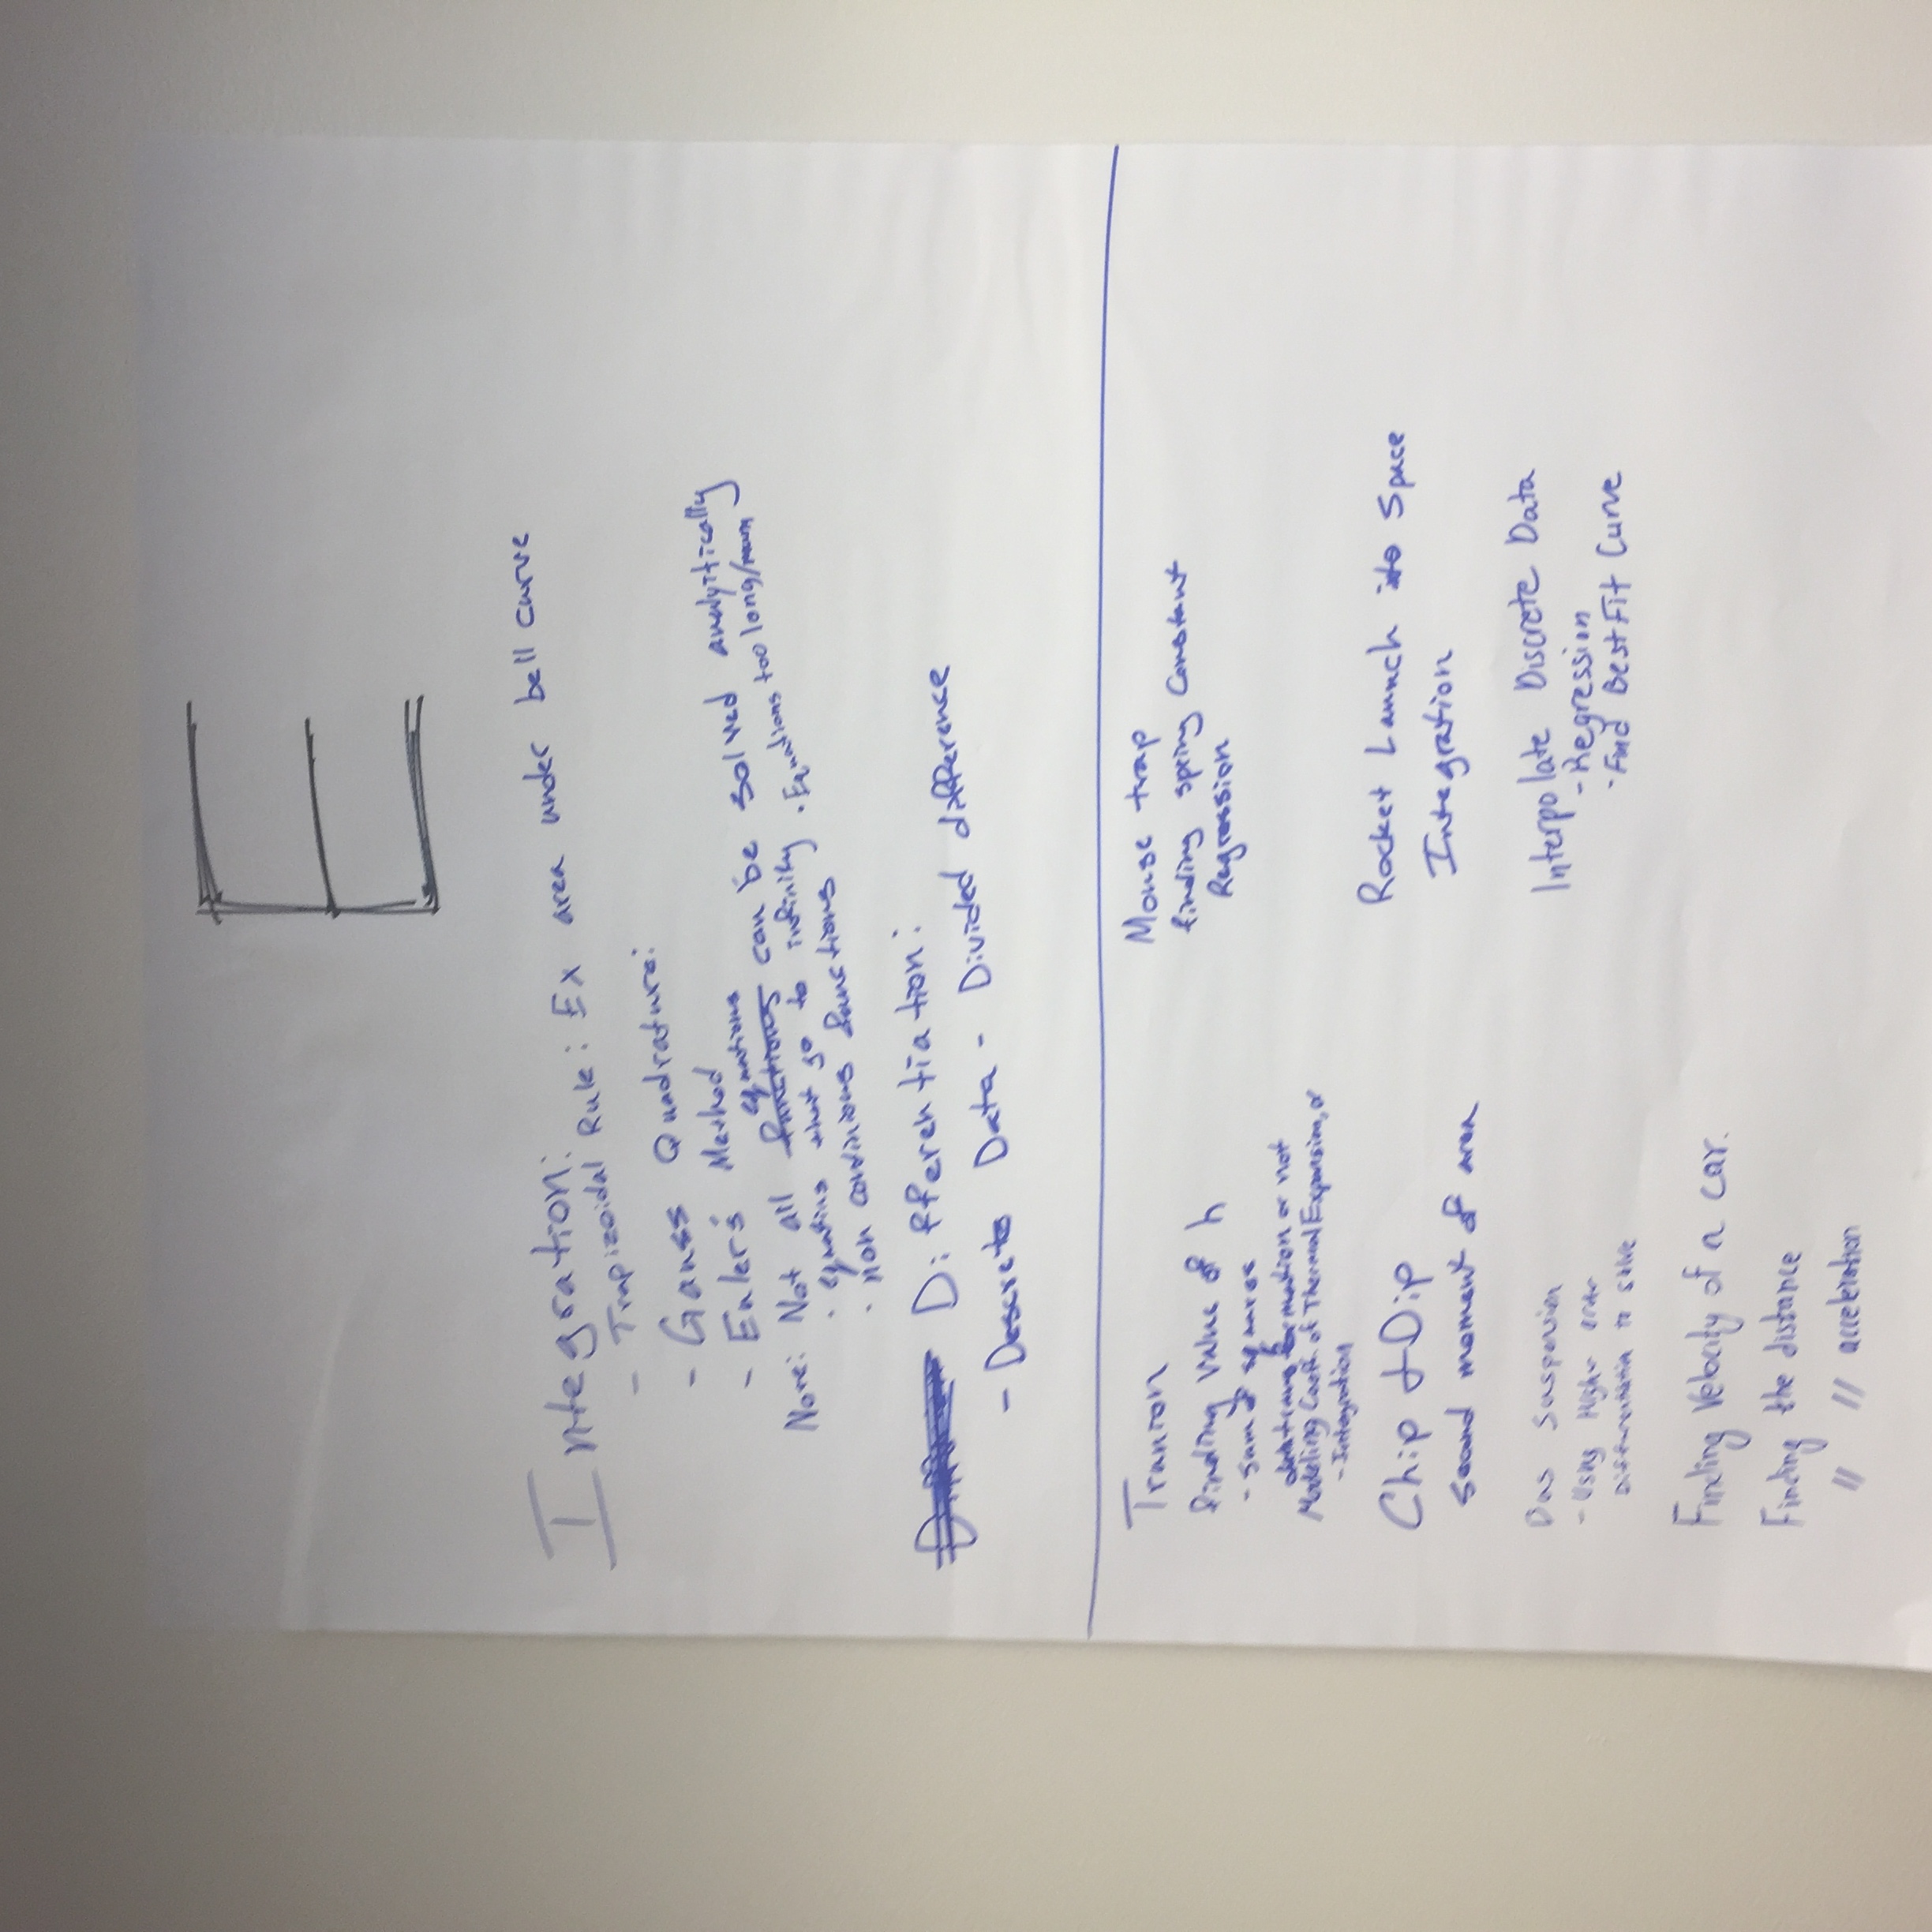 E
Integration:
- Trapizoidal Rule: Ex area under bell curve
- Gauss Quadrature:
- Euler's Method
equations
Note: Not all functions can be solved analytically
· equations that go to infinity · Equations too long/many
· non continious functions
Differentiation:
- Descrete Data - Divided difference
Trunion
finding value of h
- sum of squares
determine if formation or not
Modeling Coeff. of Thermal Expansion, α
- Integration
Mouse trap
finding spring constant
Regression
Chip & Dip
second moment of area
Rocket Launch into Space
Integration
Bus Suspension
- Using Higher order
Differentiation to solve
Interpolate Discrete Data
- Regression
- Find Best Fit Curve
Finding Velocity of a car.
Finding the distance
" " acceleration